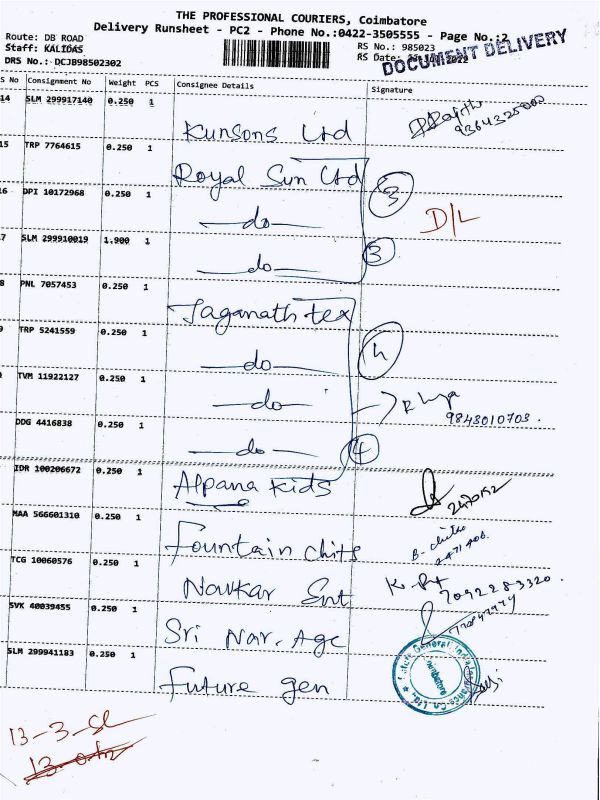 THE PROFESSIONAL COURIERS, Coimbatore
Delivery Runsheet - PC2 - Phone No.:0422-3505555 - Page No.:2
Route: DB ROAD
Staff: KALIDAS
DRS No.: DCJB98502302
RS No.: 985023
RS Date:
DOCUMENT DELIVERY
S No Consignment No Weight PCS Consignee Details Signature
14 SLM 299917140 0.250 1 Kunsons Ltd
9364325000
15 TRP 7764615 0.250 1 Royal Sun Ltd
16 DPI 10172968 0.250 1 —do— 3
D/L
7 SLM 299910019 1.900 1 —do— 3
8 PNL 7057453 0.250 1 Jaganath tex
9 TRP 5241559 0.250 1 —do— 4
TVM 11922127 0.250 1 —do—
9843010703.
DDG 4416838 0.250 1 —do— 4
IDR 100206672 0.250 1 Alpana Kids
MAA 566601310 0.250 1 Fountain chits
TCG 10060576 0.250 1 Navkar Ent
7092283320.
SVK 40039455 0.250 1 Sri Nar. Age
SLM 299941183 0.250 1 Future gen
13-3-Sl